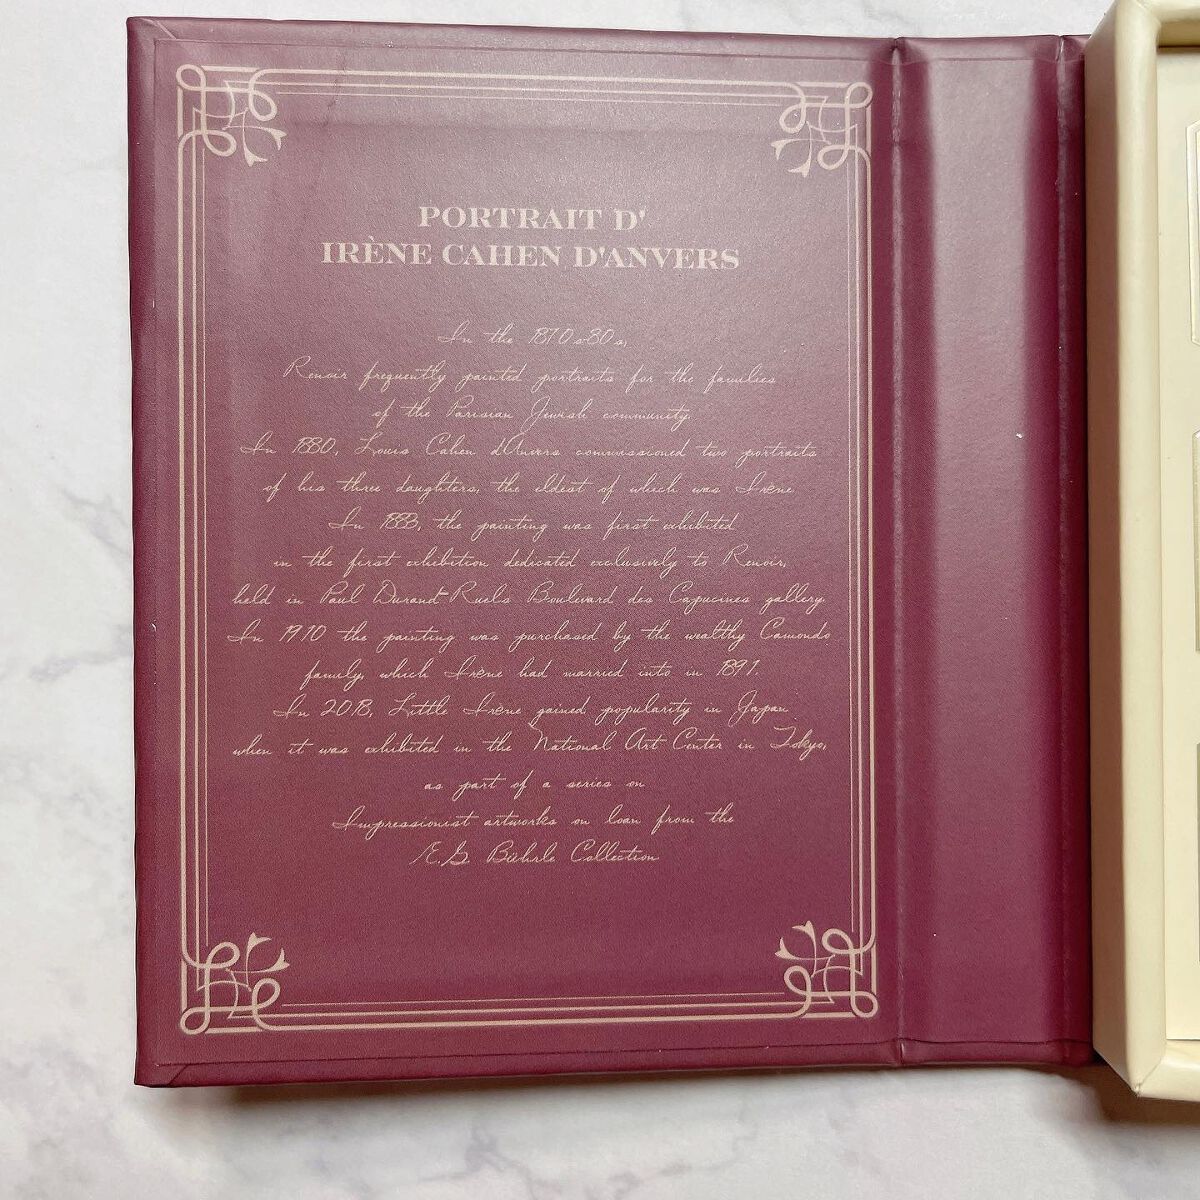 PORTRAIT D'
IRÈNE CAHEN D'ANVERS
In the 1870s-80s,
Renoir frequently painted portraits for the families
of the Parisian Jewish community.
In 1880, Louis Cahen d'Anvers commissioned two portraits
of his three daughters, the eldest of which was Irène.
In 1883, the painting was first exhibited
in the first exhibition dedicated exclusively to Renoir,
held in Paul Durand-Ruel's Boulevard des Capucines gallery.
In 1910 the painting was purchased by the wealthy Camondo
family, which Irène had married into in 1891.
In 2018, Little Irène gained popularity in Japan
when it was exhibited in the National Art Center in Tokyo,
as part of a series on
Impressionist artworks on loan from the
E.G. Bührle Collection